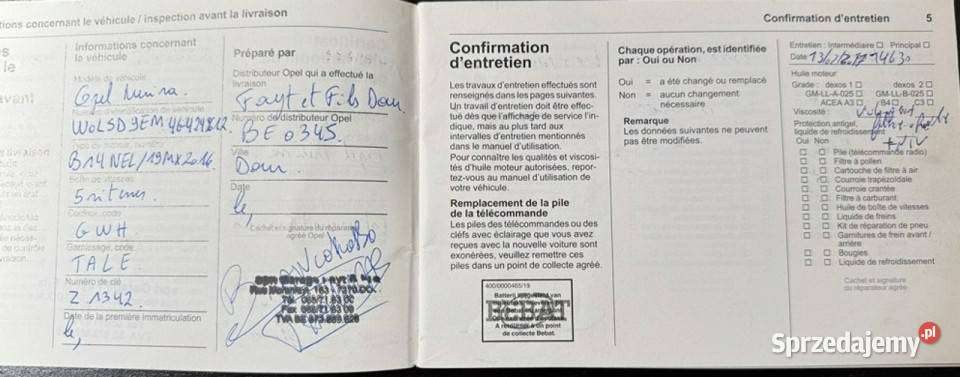 tions concernant le véhicule / inspection avant la livraison
Informations concernant
le véhicule
Modèle de véhicule
Opel
B14NEL/19MX2016
Boîte de vitesses
Couleur, code
GWH
Garnissage, code
TALE
Numéro de clé
Z 1342
Date de la première immatriculation
le,
Préparé par
Distributeur Opel qui a effectué la
livraison
Fayt et Fils Dour
Numéro de distributeur Opel
BE 0345.
Ville
Dour
Date
le,
Cachet et signature du réparateur
agréé Opel
Confirmation d'entretien 5
Confirmation
d'entretien
Les travaux d'entretien effectués sont
renseignés dans les pages suivantes.
Un travail d'entretien doit être effec-
tué dès que l'affichage de service l'in-
dique, mais au plus tard aux
intervalles d'entretien mentionnés
dans le manuel d'utilisation.
Pour connaître les qualités et viscosi-
tés d'huile moteur autorisées, repor-
tez-vous au manuel d'utilisation de
votre véhicule.
Remplacement de la pile
de la télécommande
Les piles des télécommandes ou des
clefs avec éclairage que vous avez
reçues avec la nouvelle voiture sont
exonérées, veuillez remettre ces
piles dans un point de collecte agréé.
400/0000465/19
BEBAT
A retourner à un point
de collecte Bebat.
Chaque opération, est identifiée
par : Oui ou Non
Oui = a été changé ou remplacé
Non = aucun changement
nécessaire
Remarque
Les données suivantes ne peuvent
pas être modifiées.
Entretien : Intermédiaire ☐ Principal ☐
Date
Huile moteur
Grade : dexos 1 ☐ dexos 2 ☐
GM-LL-A-025 ☐ GM-LL-B-025 ☐
ACEA A3 ☐ B4 ☐ C3 ☐
Viscosité :
Protection antigel,
liquide de refroidissement
Oui Non
☐ ☐ Pile (télécommande radio)
☐ ☐ Filtre à pollen
☐ ☐ Cartouche de filtre à air
☐ ☐ Courroie trapézoïdale
☐ ☐ Courroie crantée
☐ ☐ Filtre à carburant
☐ ☐ Huile de boîte de vitesses
☐ ☐ Liquide de freins
☐ ☐ Kit de réparation de pneu
☐ ☐ Garnitures de frein avant /
arrière
☐ ☐ Bougies
☐ ☐ Liquide de refroidissement
Cachet et signature
du réparateur agréé
Sprzedajemy.pl